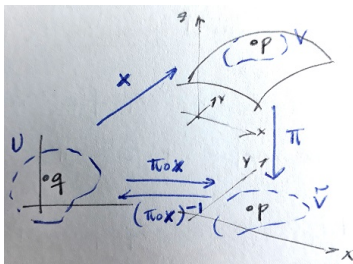 z
p
V
x
Y
x
U
q
π
π∘x
(π∘x)⁻¹
Y
p
Ṽ
x